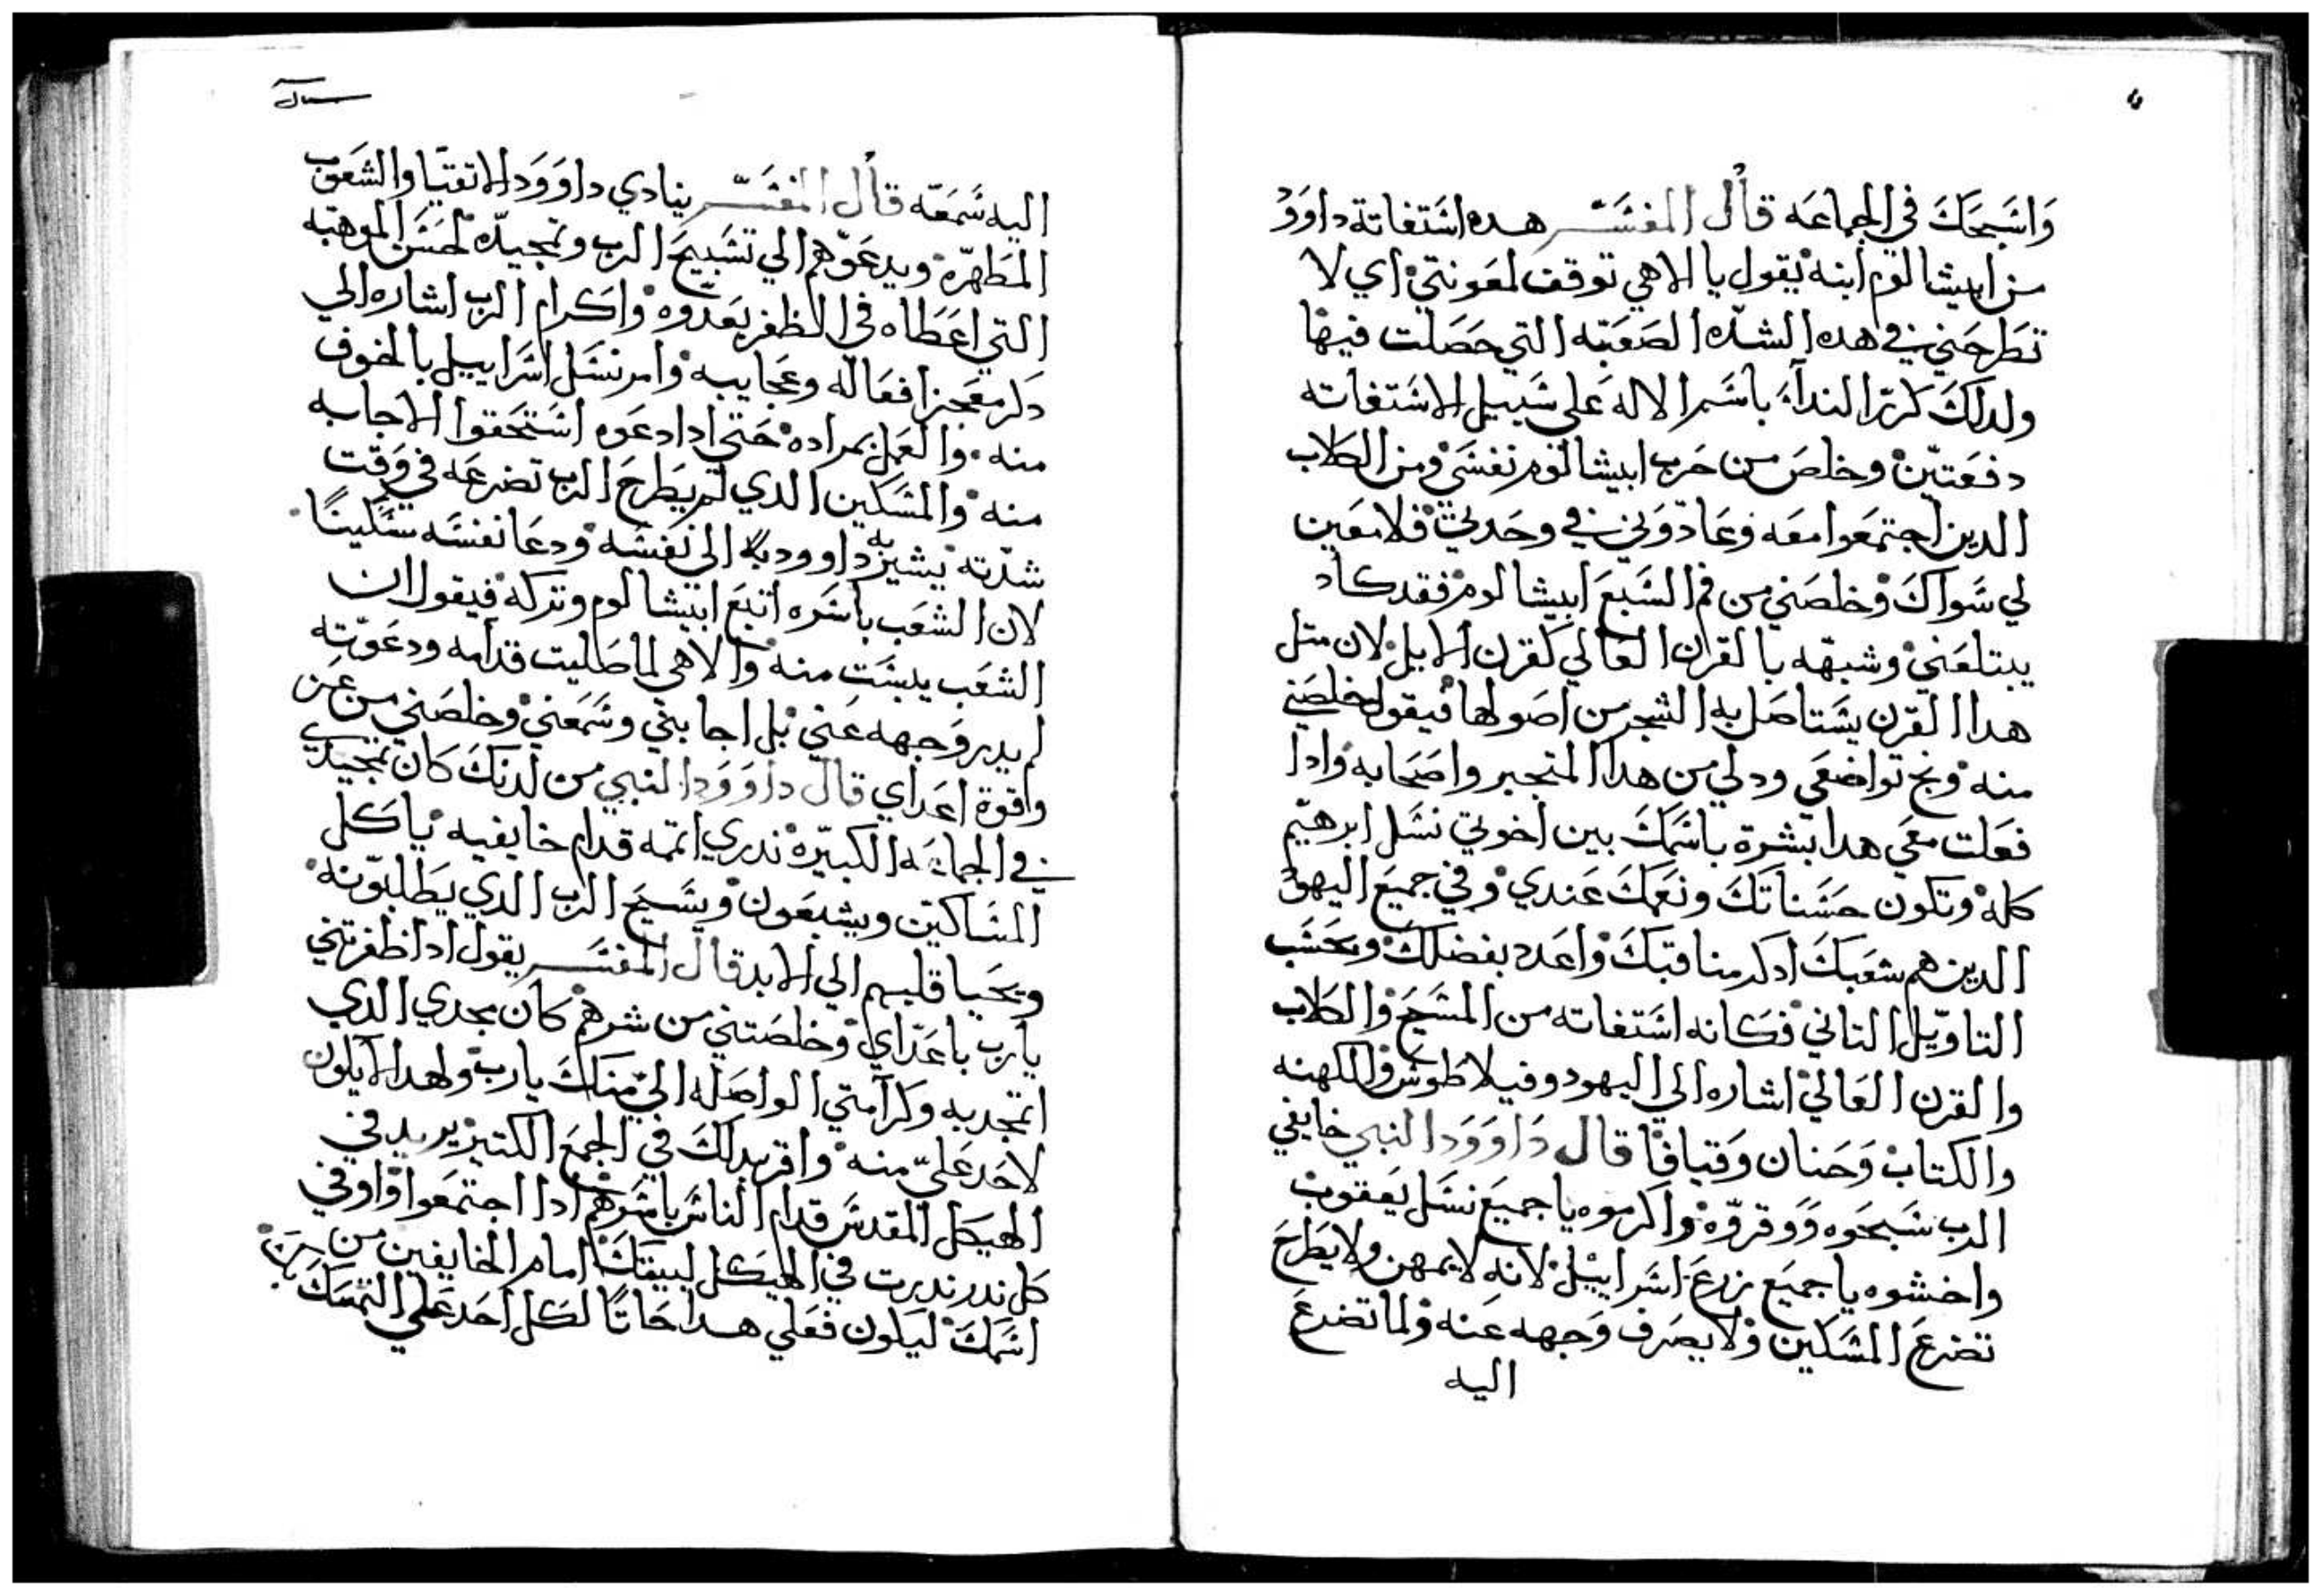 وَاسَبحَكَ في الجماعَه قال المفسَّر هده استغاتة داوَوَد
من ابيشالوم ابنه يقول يا الاهي توقف لمعَونتي اي لا
تطَرحَني في هده الشدّه الصَعَبَه التي حَصَلت فيها
ولدلكَ كرّر الندآءَ باسَم الاله عَلي سَبيل الاسَتغاته
دفعَتيَن وخلصَ من حَرب ابيشالوم نفسَي ومن الكلاب
الدين اجتمعَوا معَه وعَادوَني في وحَدتي فلا معَين
لي سَواكَ وخلصَني من فم السَبعَ ابيشالوم فقد كاد
يبتلعَني وشبهّه بالقران العَالي كقرن الايل لان متل
هدا القرن يسَتاصَل به الشجر من اصَولها فيقول خلصَني
منه ونج تواضعَي ودلي من هدا المتجبر واصَحَابه وادا
فعَلت معَي هدا بشرة باسَمكَ بين اخوتي نسَل ابرهيّم
كله وتكون حسَناتكَ ونعَمكَ عَندي وفي جميعَ اليهوَد
الدين هم شعَبكَ ادكر مناقبكَ واعَدد بفضلكَ وبحَسَب
التاويّل التاني فكانه اسَتغاته من المسَيحَ والكلاب
والقرن العَالي اشاره الي اليهود وفيلاطوسَ والكهنه
والكتاب وَحَنان وَقيافا قال دَاوَوَد النبي خايفي
الرب سَبحَوه وَوقروّه واكرموه يا جميعَ نسَل يَعَقوب
واخشوه يا جميعَ زرعَ اسَراييل لانه لا يمهن ولا يطَرحَ
تضرعَ المسَكين ولا يصَرف وَجهه عَنه ولما تضرعَ
اليه
اليه سَمعَه قال المفسَّر ينادي داوَوَد الاتقيّا والشعَوب
المطَهرّه ويدعَوّهم الي تسَبيحَ الرب وتمجيدّه لحسَن الموهبه
التي اعَطَاه في الظفر بعَدوه واكرام الرب اشاره الي
دكر معَجز افعَاله وعَجايبه وامر نسَل اسَراييل بالخوف
منه والعَمل بمراده حَتي ادا دعَوه اسَتحَقوا الاجابه
منه والمسَكين الدي لم يطَرحَ الرب تضرعَه في وَقت
شدّته يشير به داوود الي نفسَه ودعَا نفسَه مسَكينًا
لان الشعَب باسَره اتبعَ ابيشالوم وتركه فيقول ان
الشعَب ييسَت منه والاهي لما صَليت قدامه ودعَوّته
لم يدر وَجهه عَني بل اجابني وسَمعَني وخلصَني من عَن
واقوة اعَداي قال داوَوَد النبي من لدنكَ كان تمجيدي
في الجماعَه الكبيّره ندري اتمه قدام خايفيه ياكل
المسَاكيّن ويشبعَون ويسَبحَ الرب الدي يطَلبوّنه
ويحَيا قلبهم الي الابد قال المفسَّر يقول ادا ظفرتني
يارب باعَدّاي وخلصَتني من شرهم كان مجدي الدي
اتمجد به وكرآمتي الواصَله اليّ منكَ يارب ولهدا لا يكون
لاحَد عَليّ منه واقر بدلكَ في الجمعَ الكتير يريد في
الهيكل المقدسَ قدام الناسَ باسَرهم ادا اجتمعَوا واوفي
كل ندر ندرت في الهيَكل لبيتكَ امام الخايفين من
اسَمكَ ليكون فعَلي هدا حَاتًا لكل احَد عَلي التمسَكَ